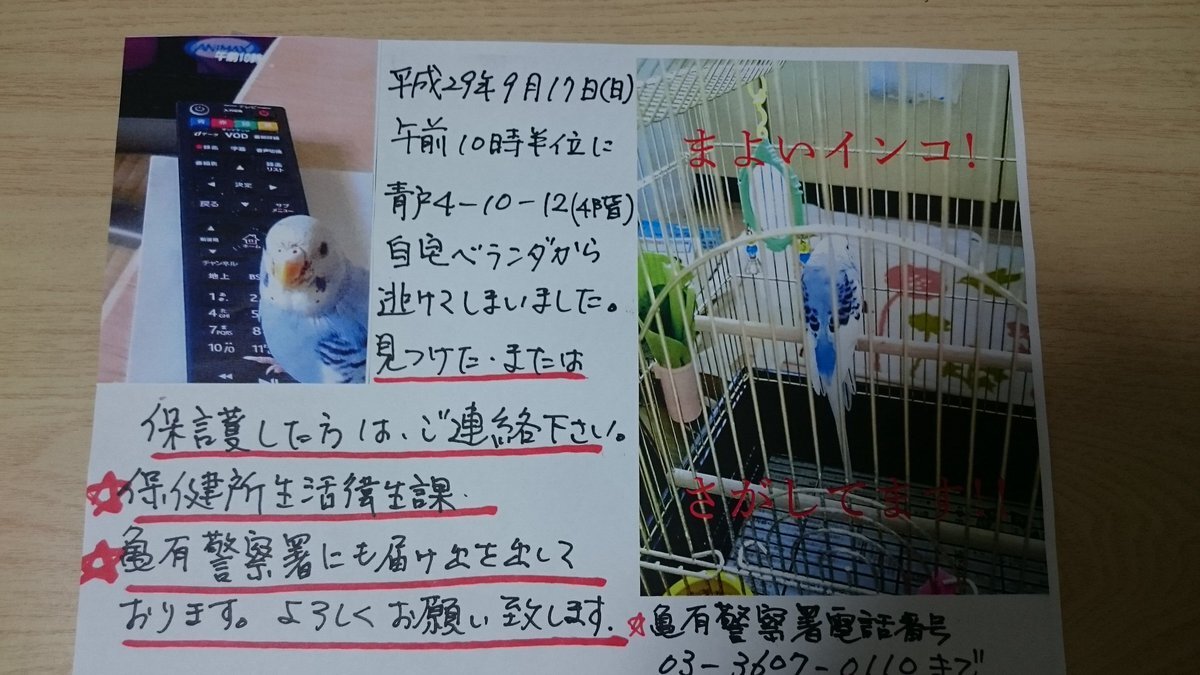 平成29年9月17日(日)
午前10時半位に
青戸4-10-12(4階)
自宅ベランダから
逃げてしまいました。
見つけた・または
保護した方は、ご連絡下さい。
☆保健所生活衛生課.
☆亀有警察署にも届け出を出して
おります。よろしくお願い致します.
まよいインコ!
さがしてます!!
☆亀有警察署電話番号
03-3607-0110まで
ANIMAX
午前10:00
青
赤
緑
黄
データ
VOD
番組詳細
録画
字幕
音声切換
番組表
録画
リスト
決定
戻る
サブ
メニュー
ホーム
チャンネル
地上
BS
1
2
4
5
7
8
10/0
11